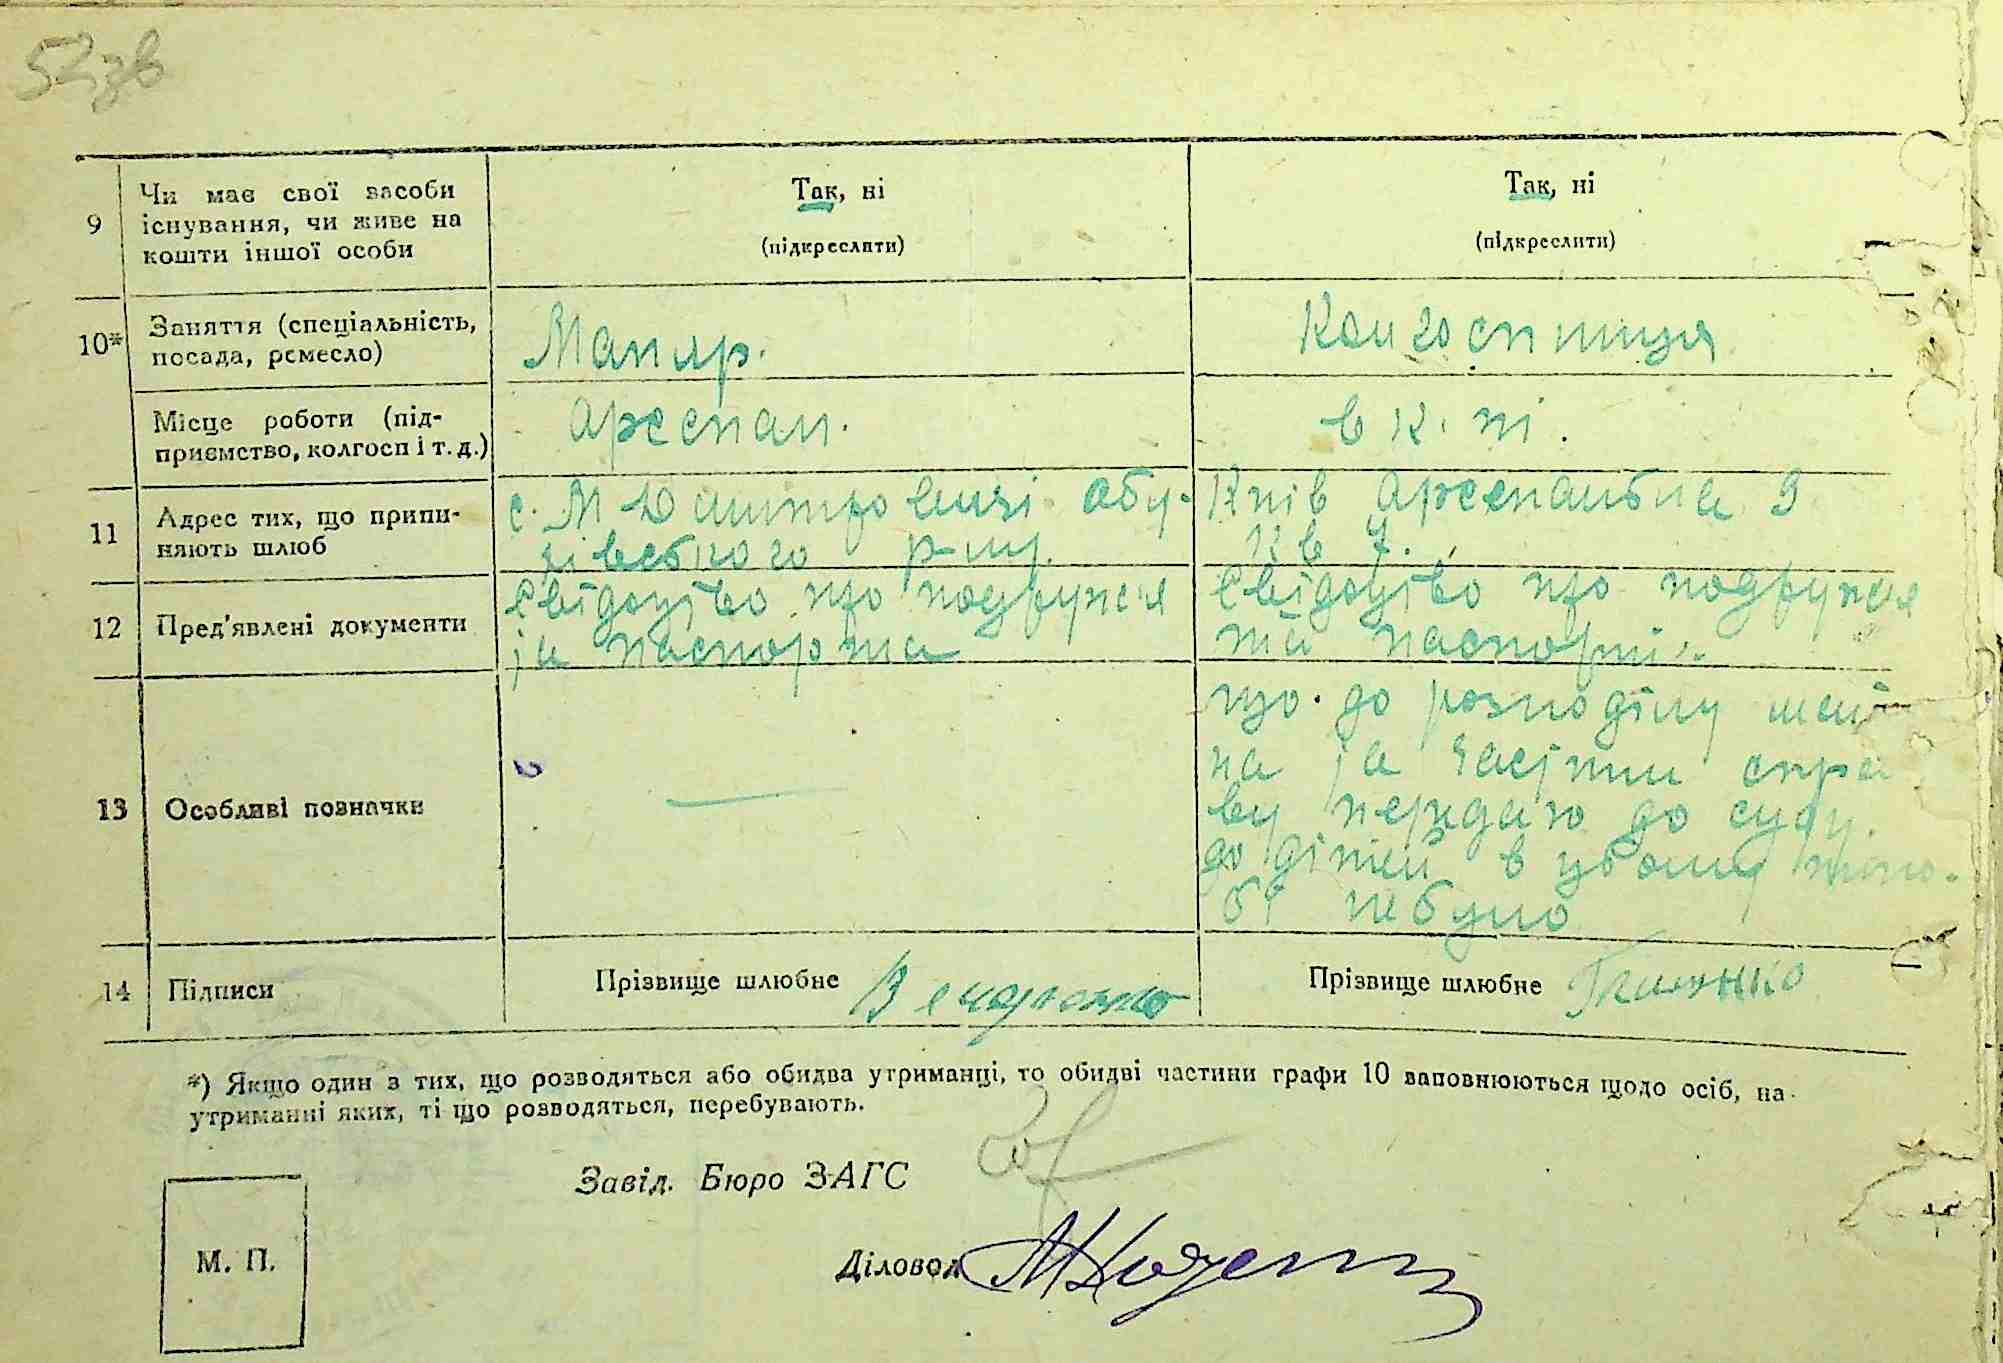 52зв
9
Чи має свої засоби
існування, чи живе на
кошти іншої особи
Так, ні
(підкреслити)
Так, ні
(підкреслити)
10*
Заняття (спеціальність,
посада, ремесло)
Маляр.
Колгоспниця
Місце роботи (під-
приємство, колгосп і т. д.)
Арсенал.
в к.
11
Адрес тих, що припи-
няють шлюб
с. М Дмитровичі Обу-
хівського р-ну.
Київ Арсенальна 9
Кв 7.
12
Пред'явлені документи
Свідоцтво про подружжя
та паспорта
Свідоцтво про подружжя
та паспорт
13
Особливі позначки
—
що до розподілу май
на та части спра
ву передаю до суду.
до дітей в цьому шлю-
бі небуло
14
Підписи
Прізвище шлюбне
Прізвище шлюбне
*) Якщо один з тих, що розводяться або обидва утриманці, то обидві частини графи 10 заповнюються щодо осіб, на
утриманні яких, ті що розводяться, перебувають.
Завід. Бюро ЗАГС
Діловод
М. П.